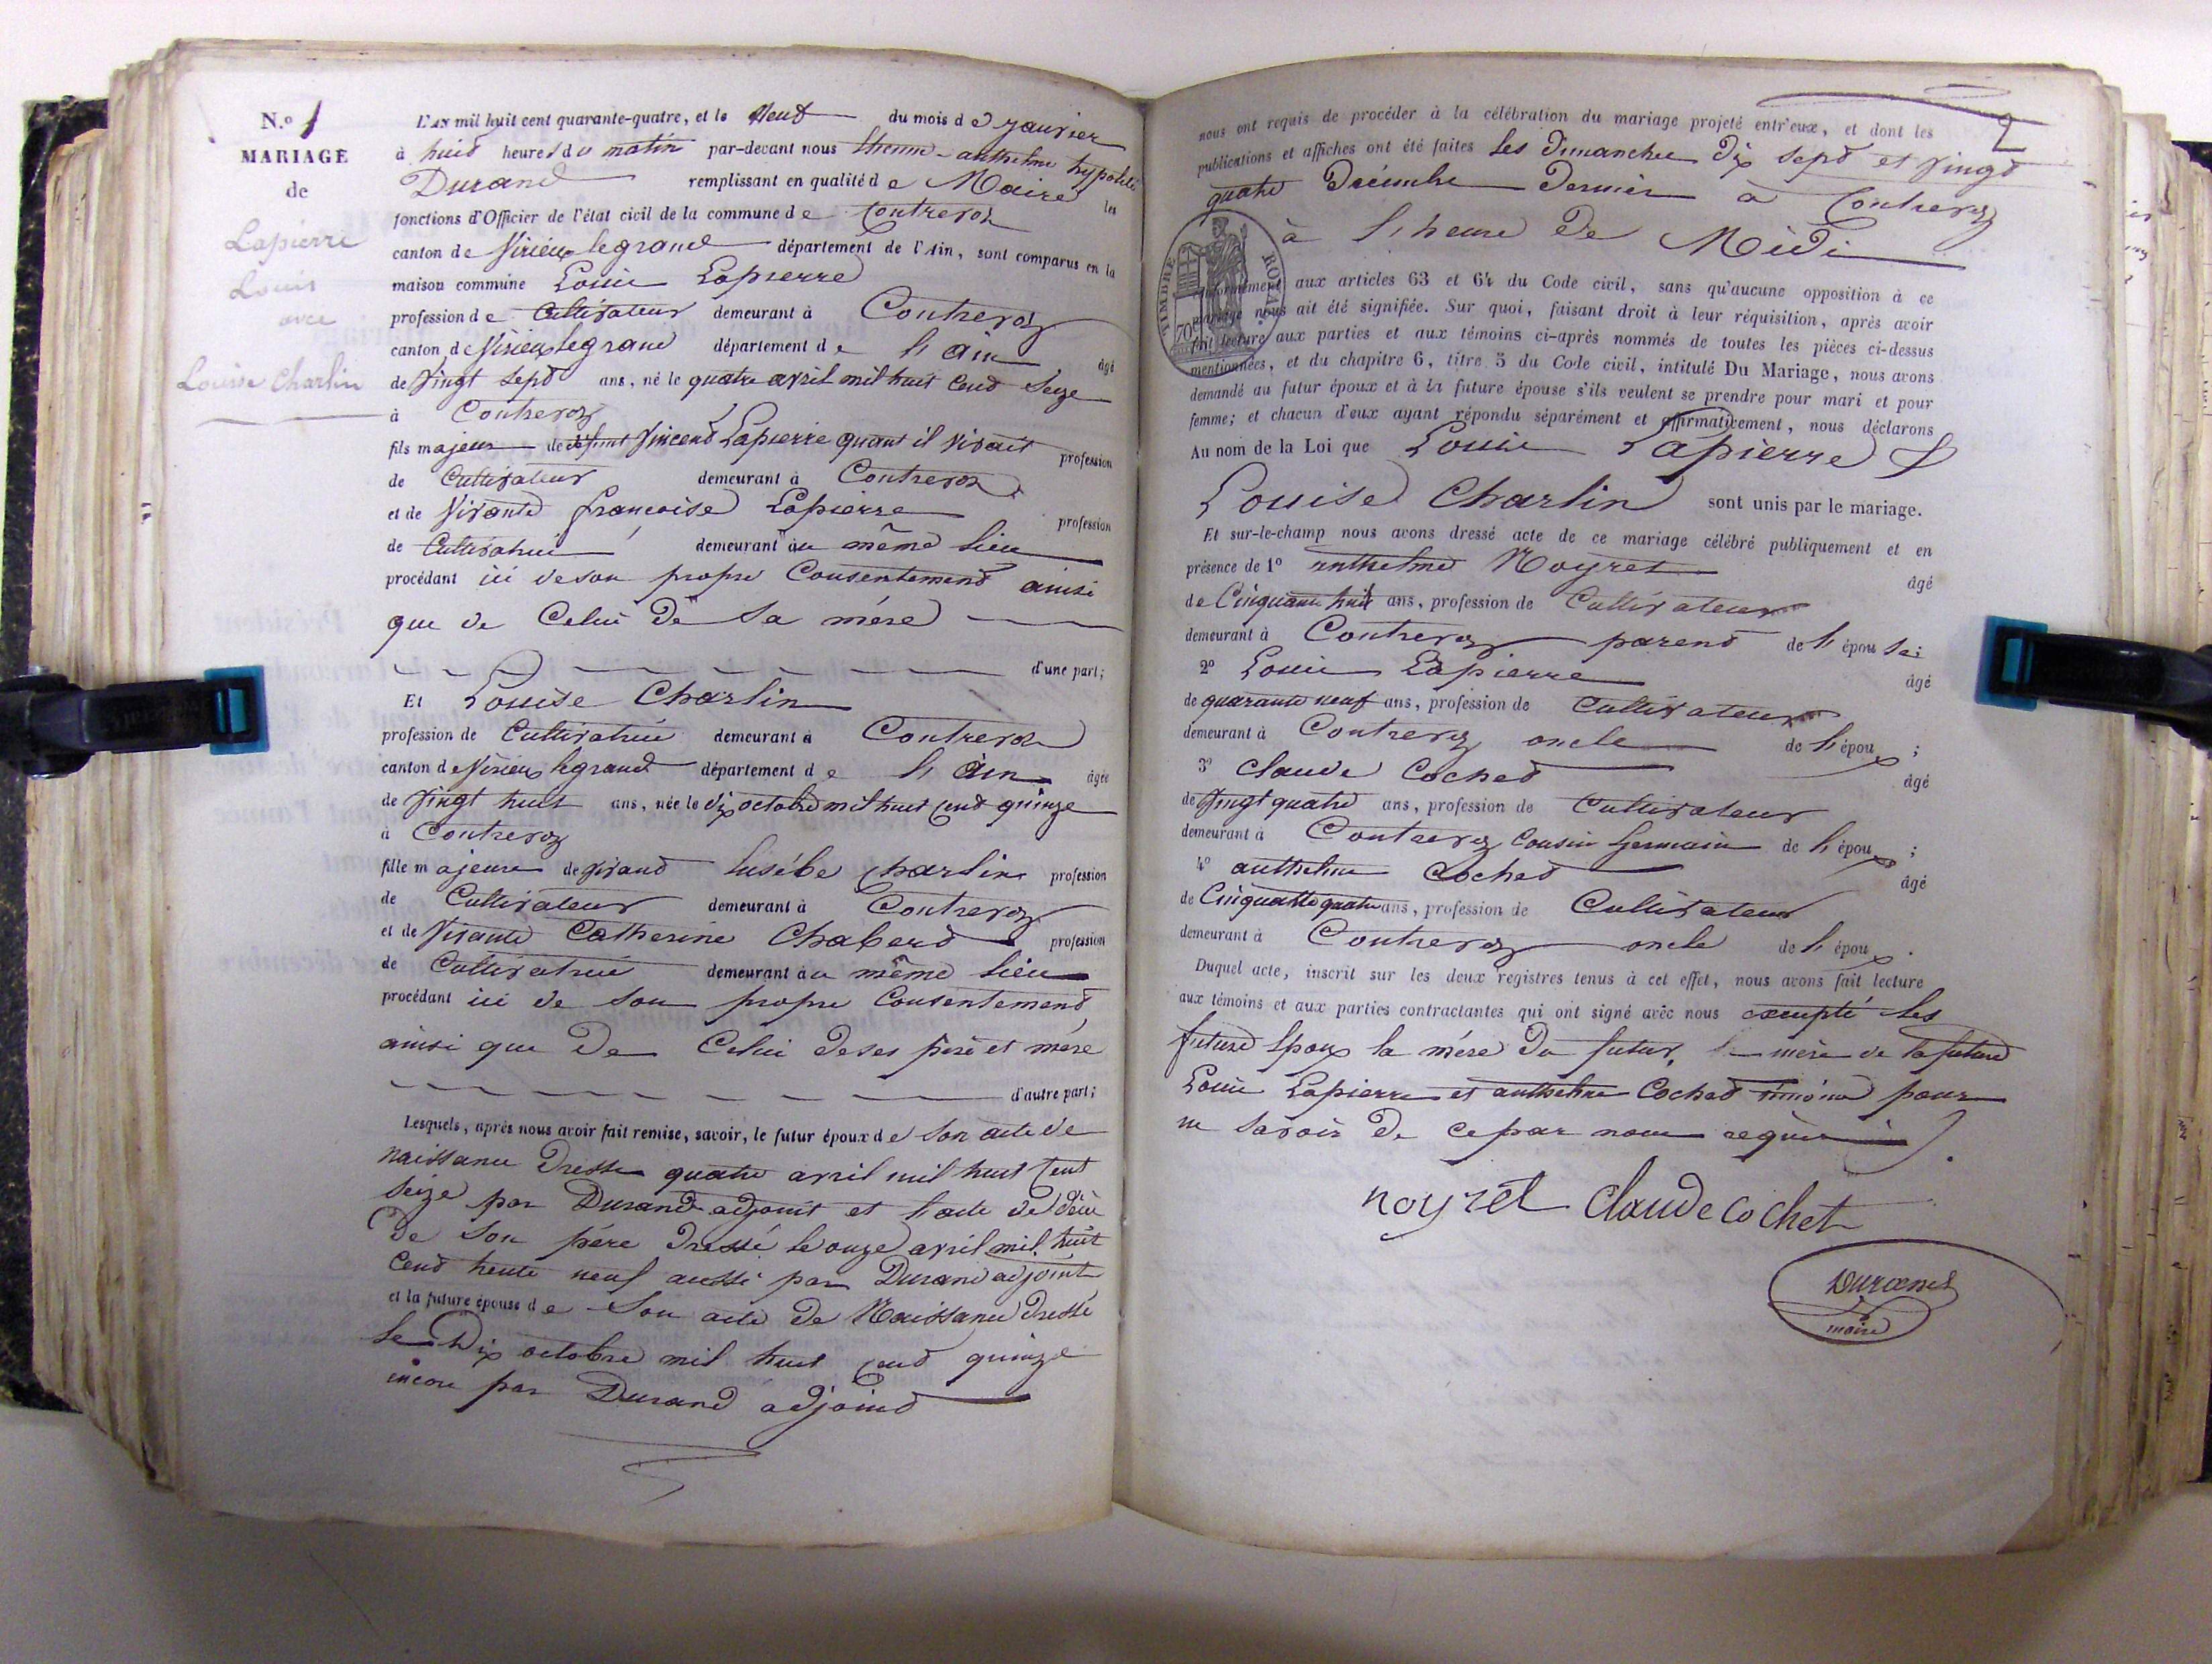 N.o 1
MARIAGE
de
Lapierre
Louis
avec
Louise Charlin
L'AN mil huit cent quarante-quatre, et le neuf du mois de janvier
à huid heures du matin par-devant nous Ethenne-anthelme hypolite
Durand remplissant en qualité de Maire les
fonctions d'Officier de l'état civil de la commune de Contrevoz
canton de Virieu legrand département de l'Ain, sont comparus en la
maison commune Louis Lapierre
profession de Cultivateur demeurant à Contrevoz
canton de Virieu legrand département de l'ain âgé
de Vingt Sept ans, né le quatre avril mil huit Cend Seize
à Contrevoz
fils majeur de défunt Vincend Lapierre quant il vivait profession
de Cultivateur demeurant à Contrevoz
et de Vivante françoise Lapierre profession
de Cultivatrice demeurant au même lieu
procédant ici de son propre Consentemend ainsi
que de Celui De Sa mére
d'une part;
Et Louise Charlin
profession de Cultivatrice demeurant à Contrevoz
canton de Virieu legrand département de l'ain âgée
de Vingt huit ans, née le dix octobre mil huit Cend quinze
à Contrevoz
fille majeure de vivand Eusébe Charlin profession
de Cultivateur demeurant à Contrevoz
et de Vivante Catherine Chaberd profession
de Cultivatrice demeurant au même lieu
procédant ici de son propre Consentemend
ainsi que De Celui de ses pére et mére
d'autre part;
Lesquels, après nous avoir fait remise, savoir, le futur époux de Son acte de
naissance Dressé quatre avril mil huit Cent
Seize par Durand adjoint et l'acte de décé
De Son pére Dressé le onze avril mil huit
Cend trente neuf aussi par Durand adjoint
et la future épouse de Son acte De Naissance Dressé
le Dix octobre mil huit Cend quinze
encore par Durand adjoind
2
nous ont requis de procéder à la célébration du mariage projeté entr'eux, et dont les
publications et affiches ont été faites les Dimanches Dix Sept et Vingt
quatre Décembre Dernier à Contrevoz
à l'heure De Midi
TIMBRE ROYAL
70c
aux articles 63 et 64 du Code civil, sans qu'aucune opposition à ce
mariage nous ait été signifiée. Sur quoi, faisant droit à leur réquisition, après avoir
fait lecture aux parties et aux témoins ci-après nommés de toutes les pièces ci-dessus
mentionnées, et du chapitre 6, titre 5 du Code civil, intitulé Du Mariage, nous avons
demandé au futur époux et à la future épouse s'ils veulent se prendre pour mari et pour
femme; et chacun d'eux ayant répondu séparément et affirmativement, nous déclarons
Au nom de la Loi que Louis Lapierre &
Louise Charlin sont unis par le mariage.
Et sur-le-champ nous avons dressé acte de ce mariage célébré publiquement et en
présence de 1o anthelme Noyret âgé
de Cinquante huit ans, profession de Cultivateur
demeurant à Contrevoz parend de l'épouse;
2o Louis Lapierre âgé
de quarante neuf ans, profession de Cultivateur
demeurant à Contrevoz oncle de l'époux;
3o Claude Cochet âgé
de Vingt quatre ans, profession de Cultivateur
demeurant à Contrevoz Cousin Germain de l'époux;
4o anthelme Cochet âgé
de Cinquante quatre ans, profession de Cultivateur
demeurant à Contrevoz oncle de l'époux.
Duquel acte, inscrit sur les deux registres tenus à cet effet, nous avons fait lecture
aux témoins et aux parties contractantes qui ont signé avec nous excepté les
futurs Epoux la mére Du futur, la mére de la future
Louis Lapierre et anthelme Cochet témoins pour
ne Savoir De ce par nous requis
noyret Claude cochet
Durand
maire